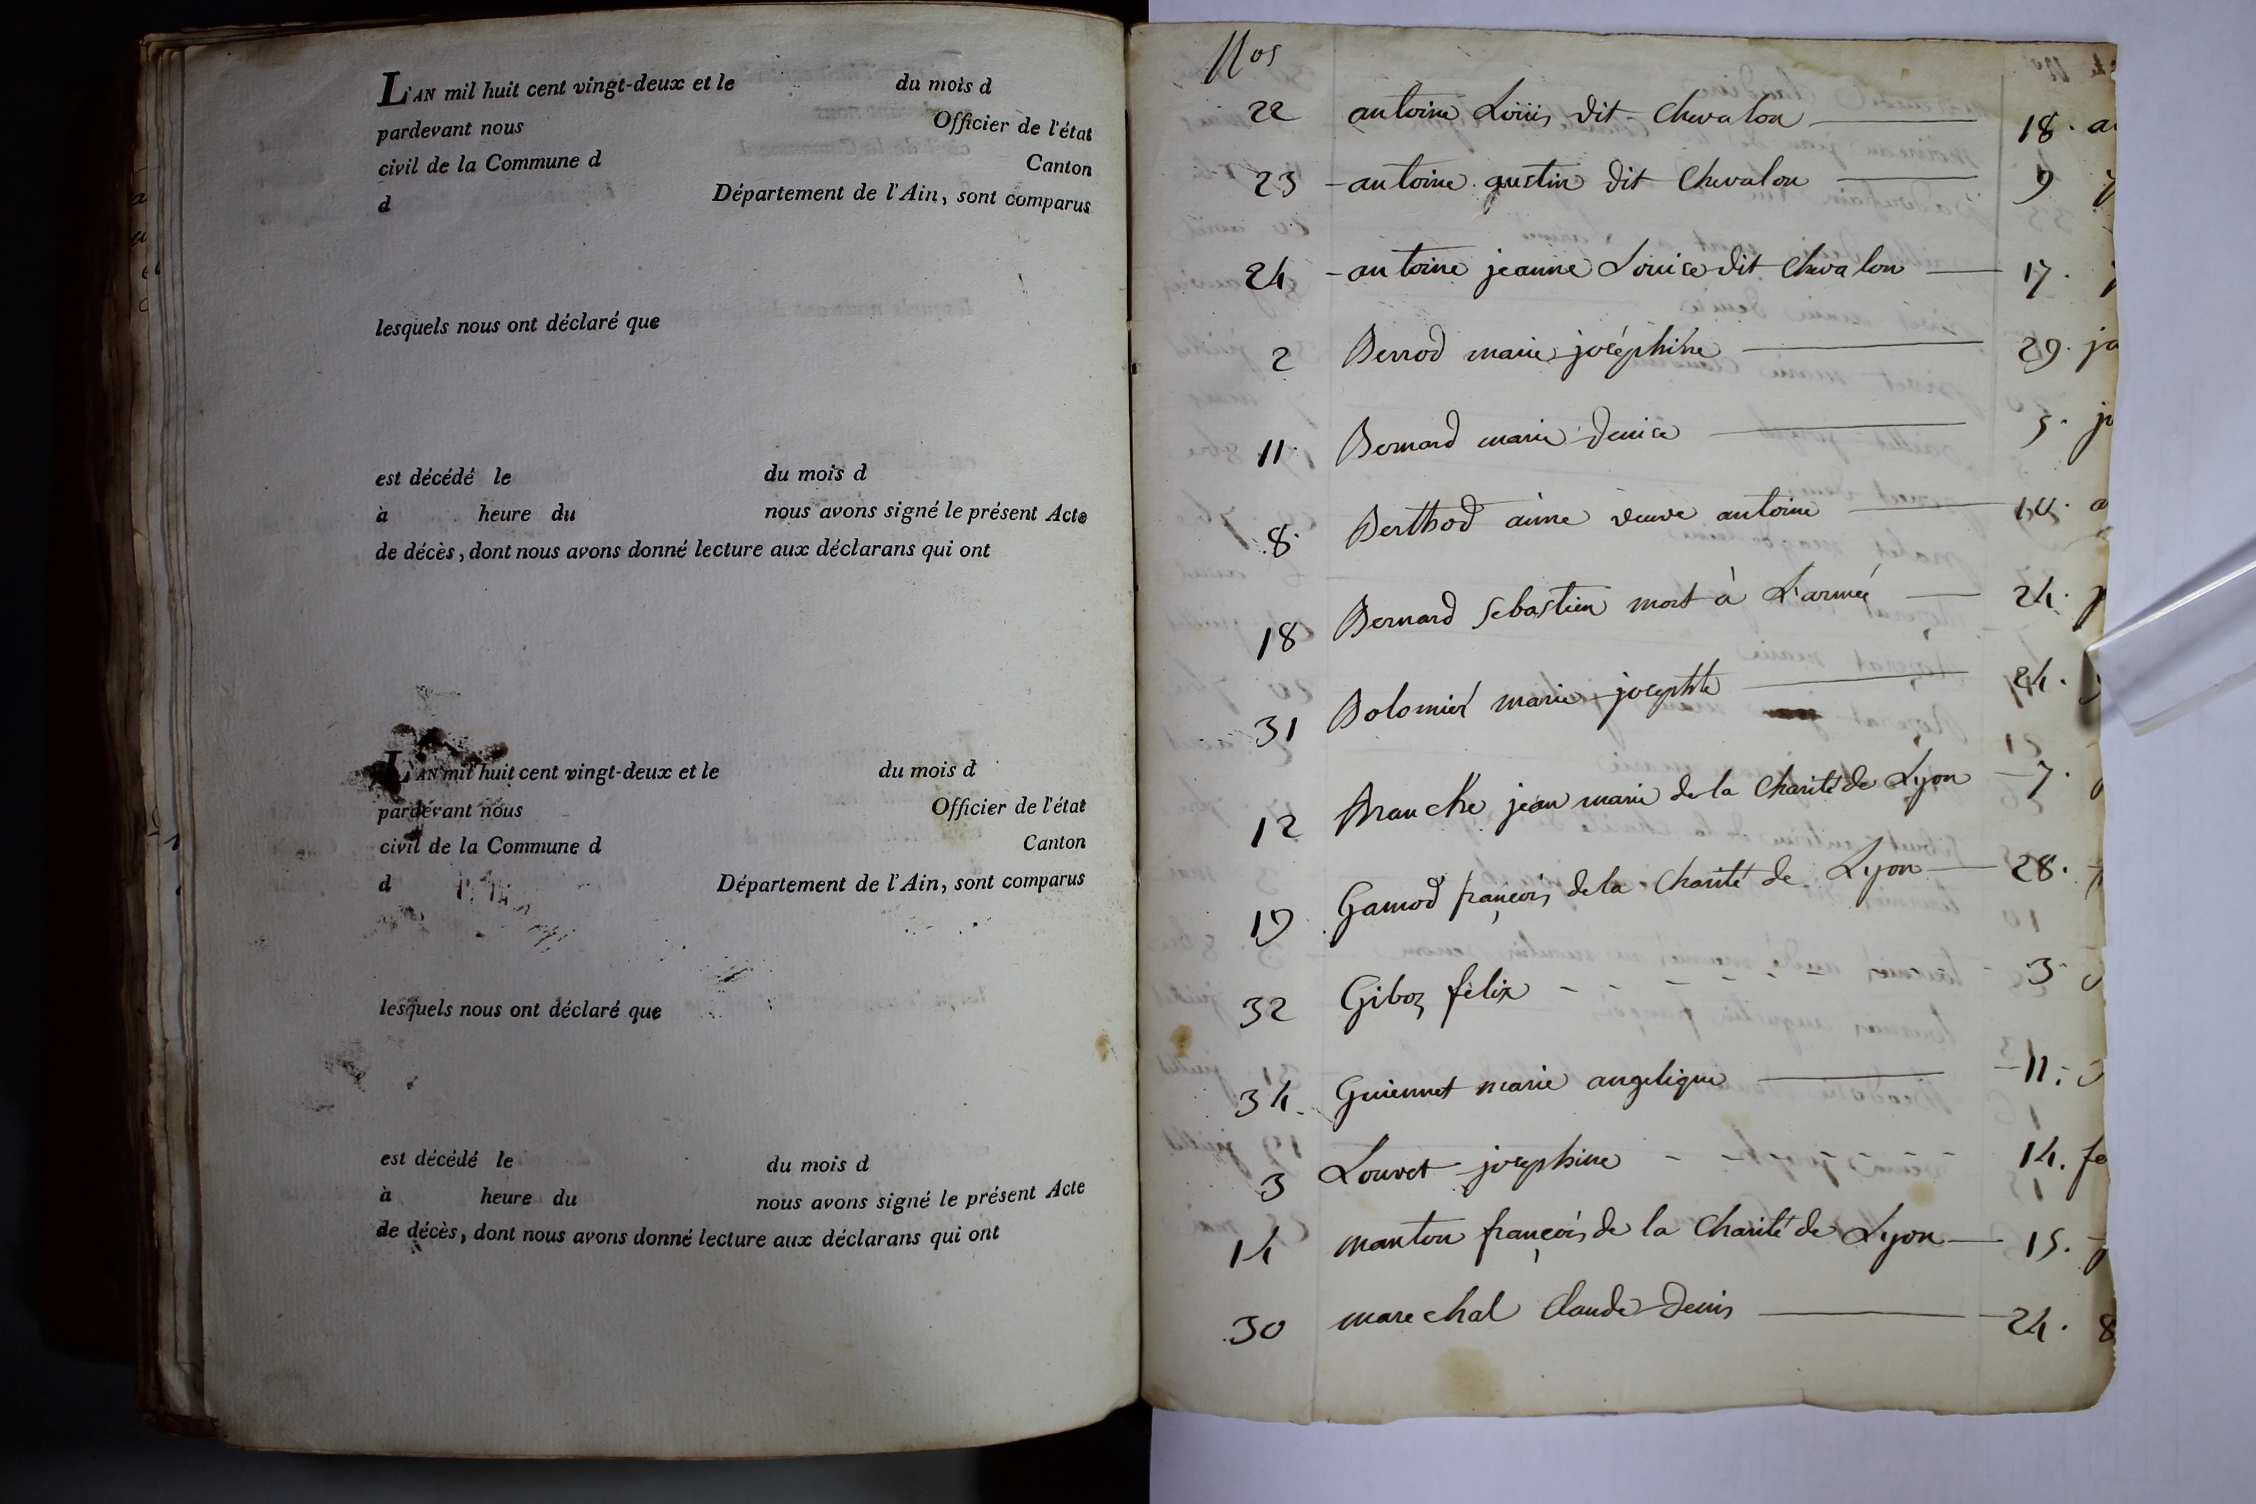 L'AN mil huit cent vingt-deux et le du mois d
pardevant nous Officier de l'état
civil de la Commune d Canton
d Département de l'Ain, sont comparus
lesquels nous ont déclaré que
est décédé le du mois d
à heure du nous avons signé le présent Acte
de décès, dont nous avons donné lecture aux déclarans qui ont
L'AN mil huit cent vingt-deux et le du mois d
pardevant nous Officier de l'état
civil de la Commune d Canton
d Département de l'Ain, sont comparus
lesquels nous ont déclaré que
est décédé le du mois d
à heure du nous avons signé le présent Acte
de décès, dont nous avons donné lecture aux déclarans qui ont
Nos
22 antoine Louis dit chevalon 18.
23 antoine austin dit chevalon 9
24 antoine jeanne Louise dit chevalon 17.
2 Berrod marie joséphine 29. ja
11. Bernard marie denise 5. ju
8. Berthod aine veuve antoine 14. a
18 Bernard Sebastien mort à L'armée 24.
31 Bolomier marie josephte 24.
12 Branche jean marie de la charité de Lyon 7.
19 Gamod françois de la charité de Lyon 28.
32 Giboz félix 3
34. Guiennet marie angelique 11.
3 Louvet josephine 14. fe
14 manton françois de la charité de Lyon 15.
30 marechal Claude denis 24. 8